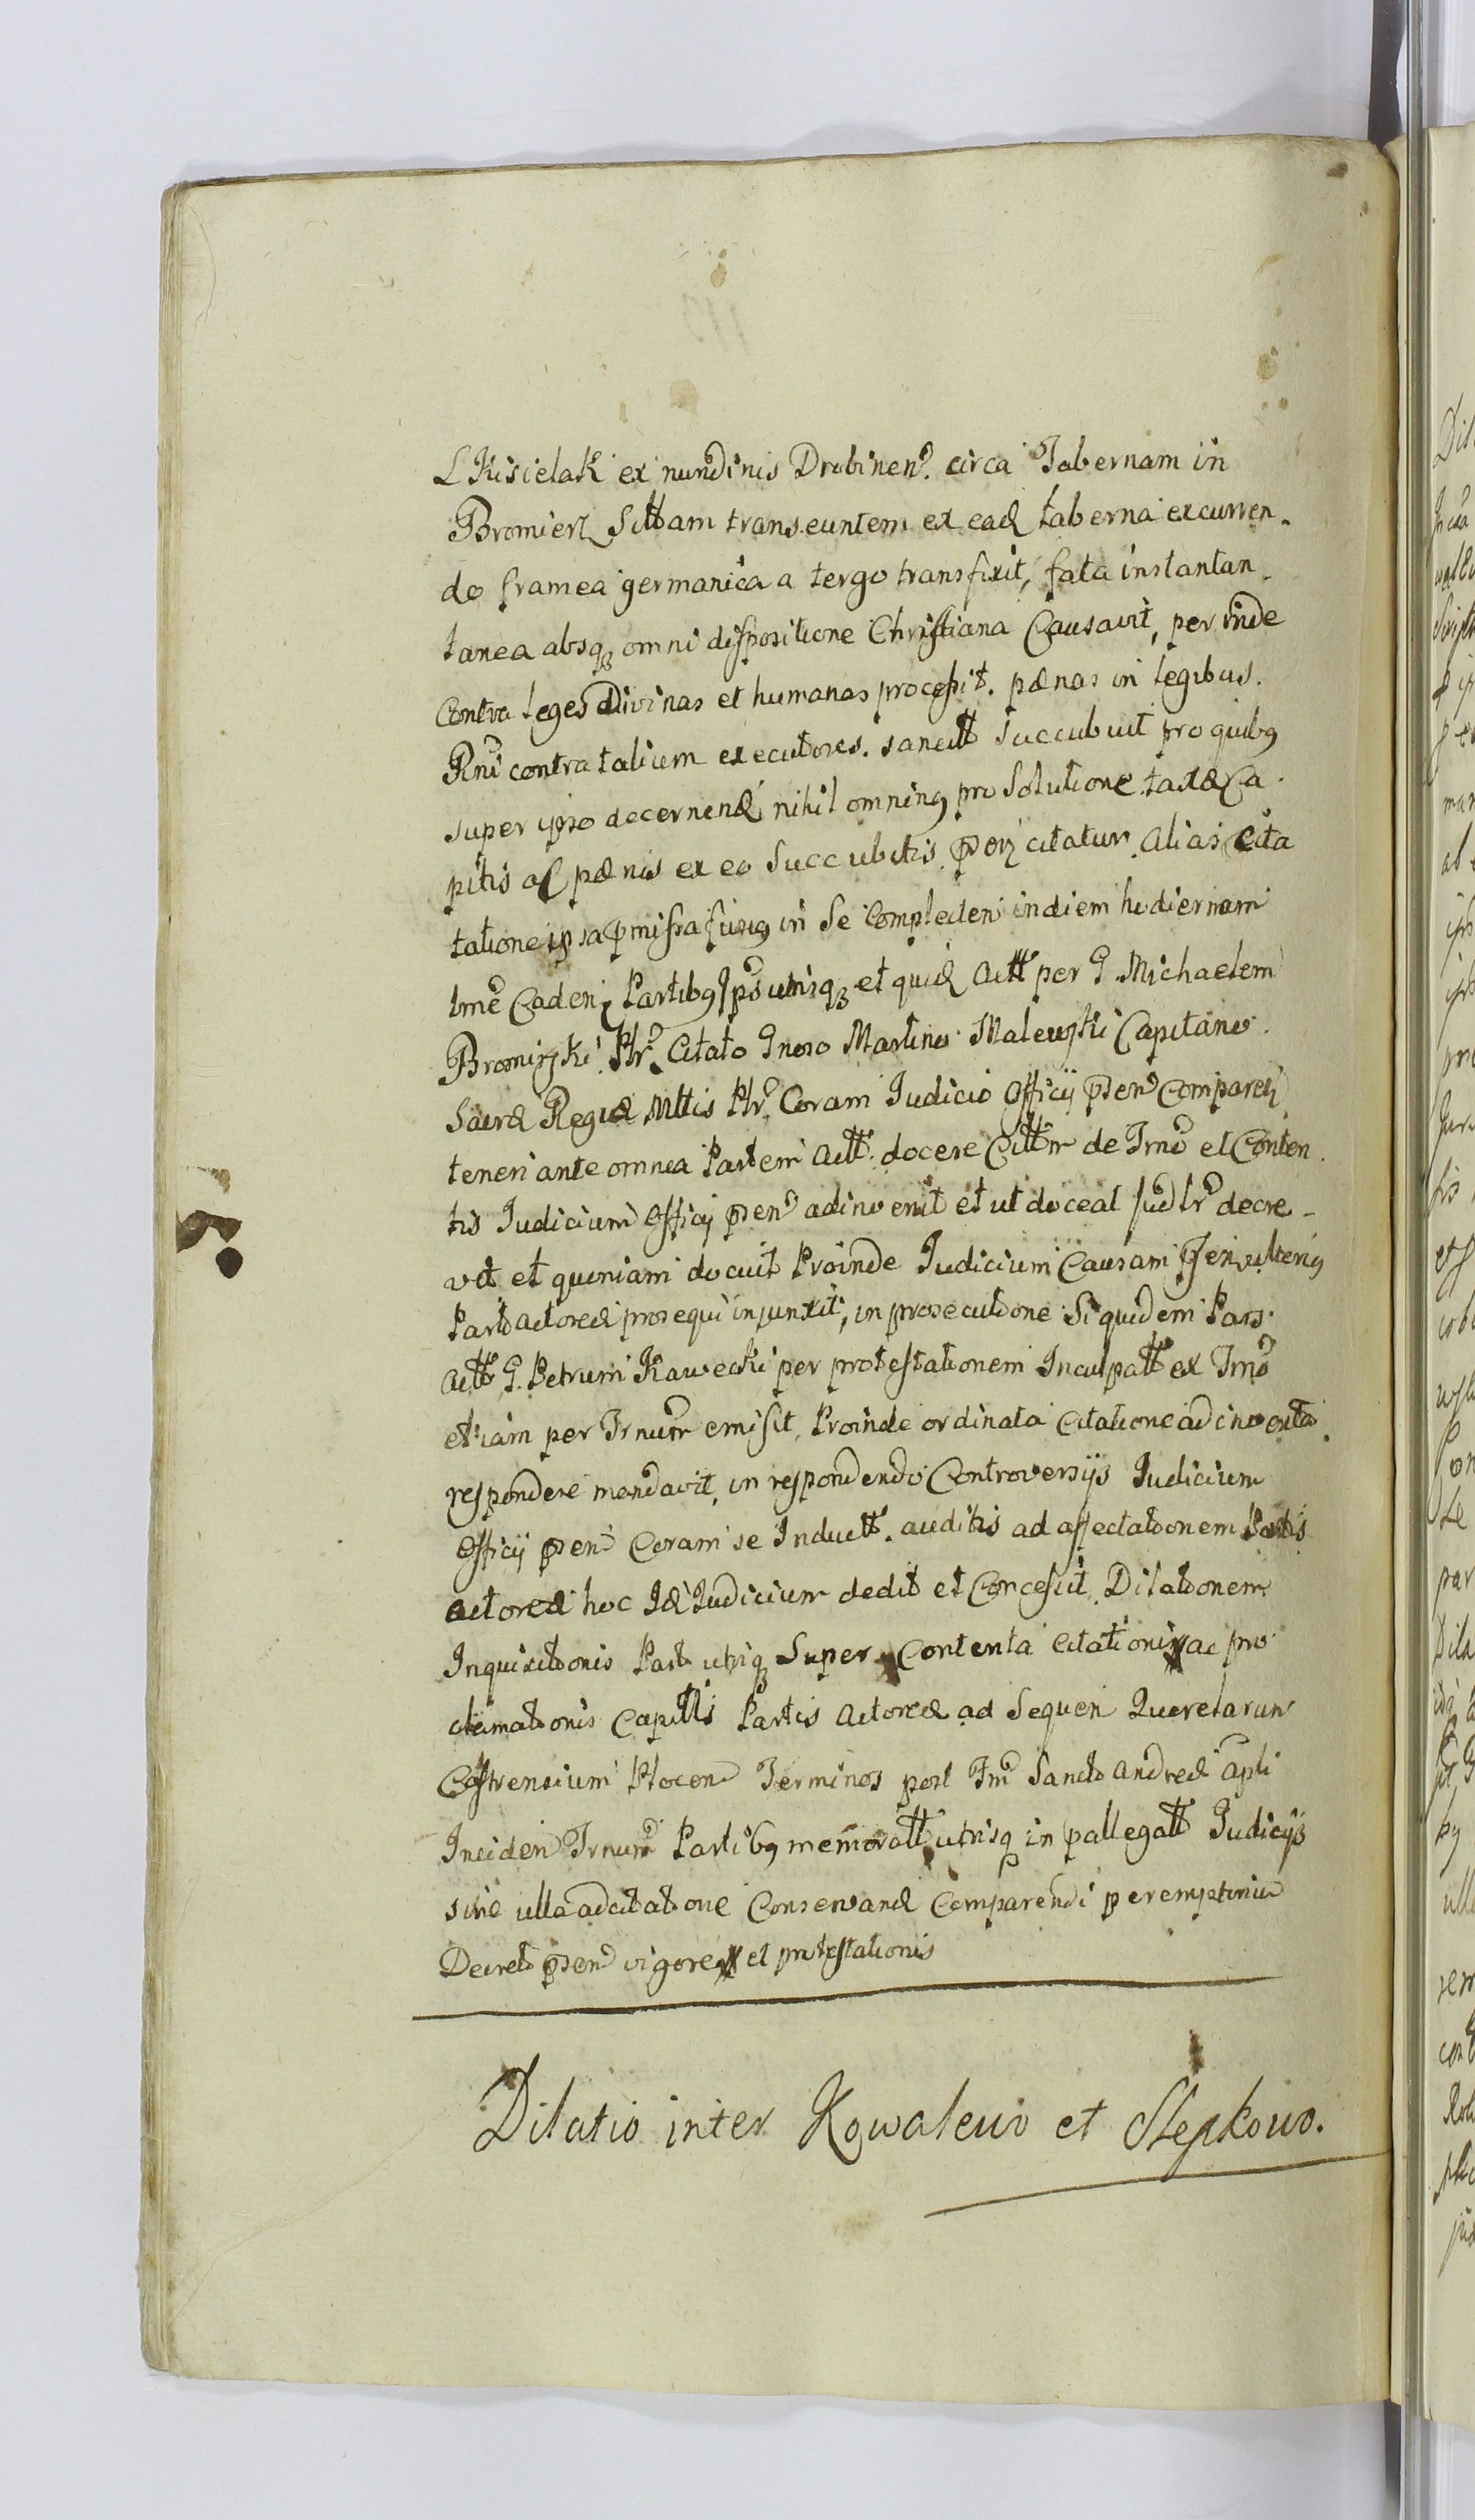 L Kisielak ex nundinis Drobinen. circa Tabernam in
Bromierz Sittam transeuntem ex ead taberna excurren.
do framea germanica a tergo transfixit, fata instantan.
tanea absq omni dispositione Christiana Causavit, per inde
Contra leges Divinas et humanas processit. pænas in legibus.
Rni contra talium executores. sancitt succubuit pro quibq
super ipso decernend nihil omninq pro Solutione taxæ Ca.
pitis ac pænis ex eo Succubitis citatur. alias Cita
tatione ipsa pmissa in Se Complecten in diem hodiernam
Caden Partibq Ips utrisq et quid Actt per G. Michaelem
Bromirski. Citato Gnoso Martino Malewski Capitaneo.
Sacræ Regiæ Mttis Coram Judicio Officij psen Comparen
teneri ante omnea Partem Actt. docere Cittm de Trno et Conten.
tis Judicium Officij psen adinvenit et ut doceat decre-
vit et quoniam docuit Proinde Judicium Causam ulteriq
Parti actoreæ prosequi injunxit, in prosecutione Siquidem Pars.
Actt G. Petrum Kawecki per protestationem Inculpatt ex Trno
etiam per Trnum emisit, Proinde ordinata Citatione adinventa.
respondere mandavit, in respondendo Controversijs Judicium
Officij psen Coram se Inductt. auditis ad affectationem Partis
actoreæ hoc Id Judicium dedit et Concessit Dilationem
Inquisitionis Part utriq Super Contenta Citationis ac pro
clamationis Capittis Partis Actoreæ ad Sequen Querelarum
Castrensium Plocen Terminos post Sancti Andreæ Apli
Inciden Trnum Partibq memoratt utrisq in pallegatt Judicijs
sine ulla adcitatione Conservand Comparendi peremptorium
Decreto psen vigore et protestationis
Dilatio inter Kowalewo et Slepkowo.